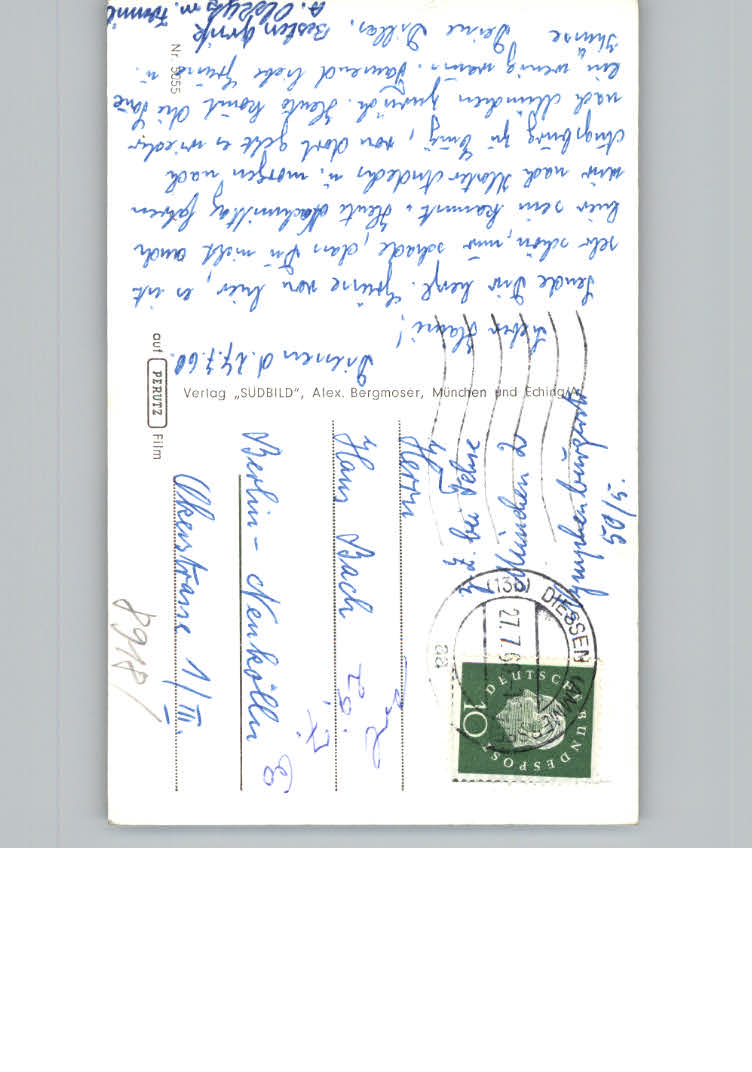 Diessen d. 27.7.60.
Lieber Hansi!
Sende Dir herzl. Grüsse von hier, es ist
sehr schön, nur schade, dass Du nicht auch
hier sein kannst. Heute Nachmittag fahren
wir nach Kloster Andechs u. morgen nach
Augsburg zu, von dort geht es wieder
nach München zurück. Heute kommt die Sonne
ein wenig raus. Tausend liebe Grüsse u.
Küsse Deine
Besten Gruß
Nr. 5055
Verlag „SÜDBILD", Alex. Bergmoser, München und Eching/A.
auf PERUTZ Film
DIESSEN (AMMERSEE)
(13b)
27.7.60
aa
DEUTSCHE BUNDESPOST
10
Herrn
Hans Bach
Berlin-Neukölln
Okerstrasse 1/III.
z. Z. bei
München 2
Nymphenburgerstr.
50/5.
8918/